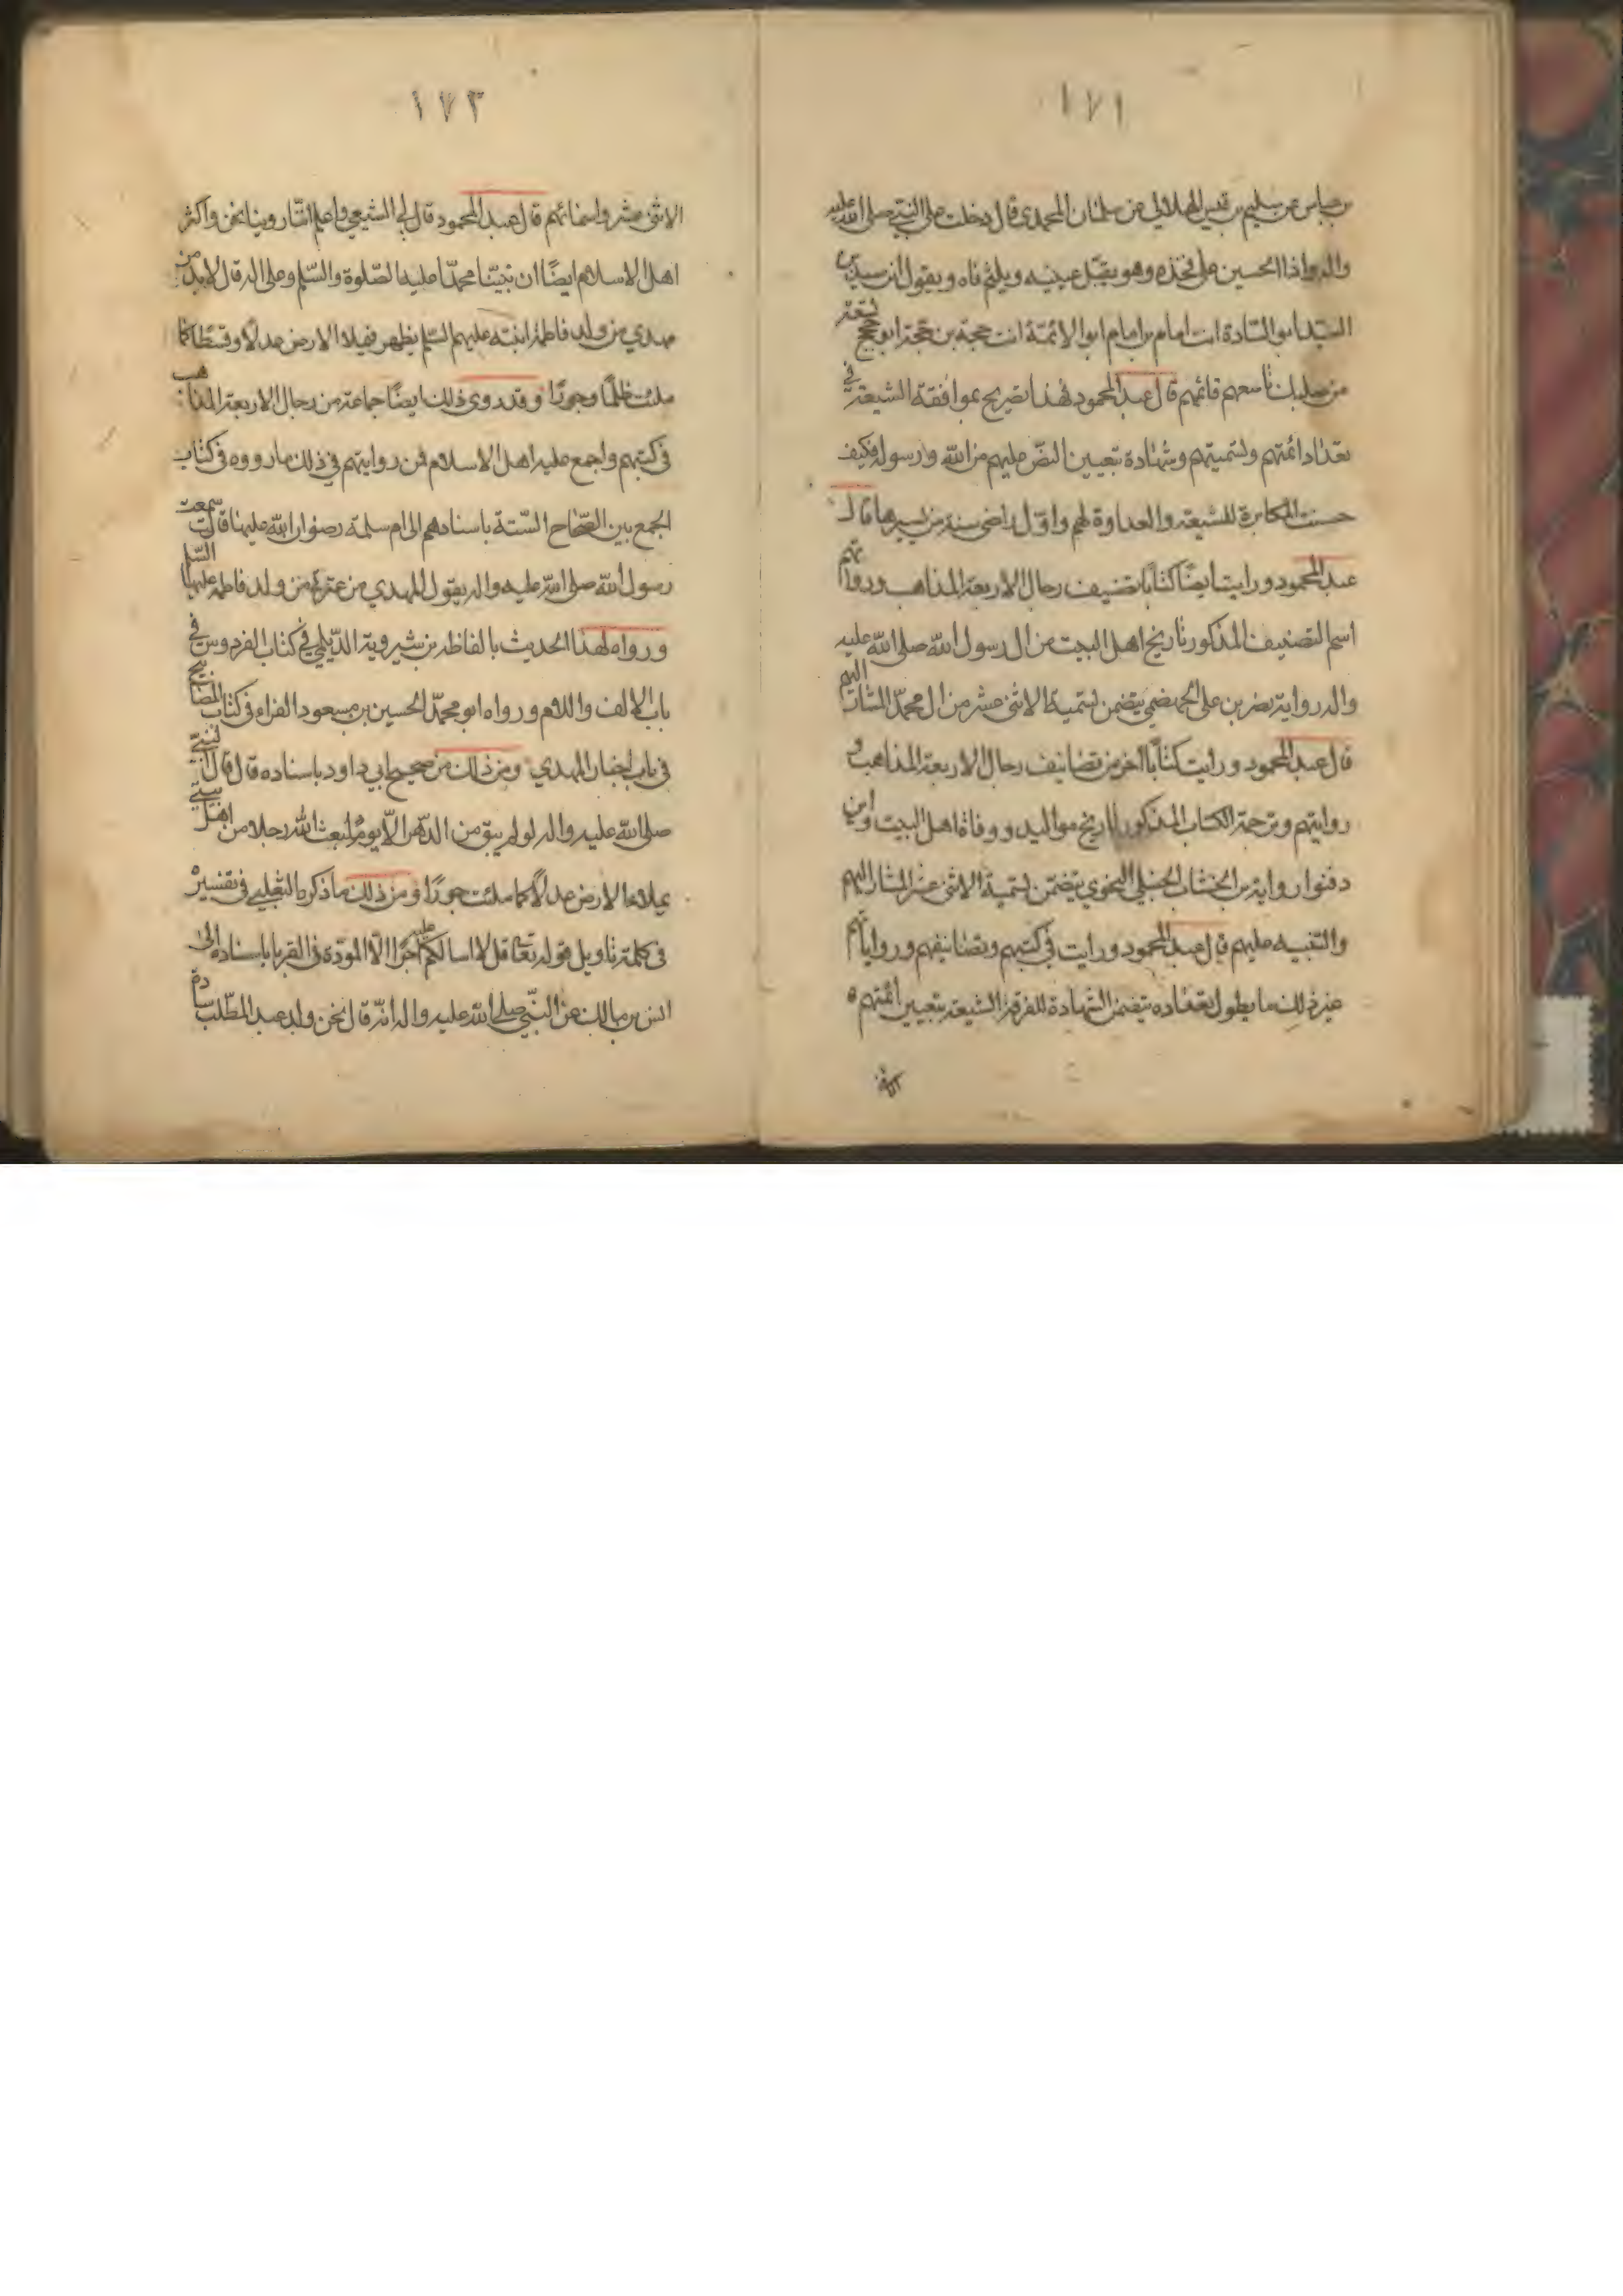 ١٧١
بن عباس عن سليم بن قيس الهلالي عن سلمان المحمدي قال دخلت على النبي صلى الله عليه
واله واذا الحسين على فخذه وهو يقبل عينيه ويلثم فاه ويقول انت سيد بن
السيد ابو السادة انت امام بن امام ابو الائمة انت حجة بن حجة ابو حجج تسعة
من صلبك تاسعهم قائمهم قال عبد المحمود فهذا تصريح بموافقة الشيعة في
تعداد ائمتهم وتسميتهم وشهادة بتعيين النص عليهم من الله ورسوله فكيف
حسنت المكابرة للشيعة والعداوة لهم واول راضي سنة من يسيرها قال
عبد المحمود ورايت ايضًا كتابًا تصنيف رجال الاربعة المذاهب ورواتهم
اسم التصنيف المذكور تاريخ اهل البيت من ال رسول الله صلى الله عليه
واله رواية نصر بن علي الجهضمي يتضمن تسمية الاثنى عشر من ال محمد المشار اليهم
قال عبد المحمود ورايت كتابًا اخر من تصانيف رجال الاربعة المذاهب و
روايتهم وترجمة الكتاب المذكور تاريخ مواليد ووفاة اهل البيت واين
دفنوا رواية بن الخشاب الحنبلي النحوي يتضمن تسمية الاثنى عشر المشار اليهم
والتنبيه عليهم قال عبد المحمود ورايت في كتبهم وتصانيفهم ورواياتهم
غير ذلك ما يطول تعداده يتضمن الشهادة للفرقة الشيعة بتعيين ائمتهم
١٧٣
الاثنى عشر واسمائهم قال عبد المحمود قال لي الشيعي واعلم اننا روينا نحن واكثر
اهل الاسلام ايضًا ان نبينا محمدًا عليه الصلوة والسلم وعلى اله قال لابد من
مهدي من ولد فاطمة ابنته عليهم السلم يظهر فيملا الارض عدلًا وقسطًا كما
ملئت ظلمًا وجورًا وقد روى ذلك ايضًا جماعة من رجال الاربعة المذاهب
في كتبهم واجمع عليه اهل الاسلام فمن روايتهم في ذلك ما رووه في كتاب
الجمع بين الصحاح الستة باسنادهم الى ام سلمة رضوان الله عليها قالت سمعت
رسول الله صلى الله عليه واله يقول المهدي من عترتي من ولد فاطمة عليها السلم
ورواه لهذا الحديث بالفاظه بن شيروية الديلمي في كتاب الفردوس في
باب الالف واللام ورواه ابو محمد الحسين بن مسعود الفراء في كتاب المصابيح
في باب اخبار المهدي ومن ذلك من صحيح ابي داود باسناده قال قال النبي
صلى الله عليه واله لو لم يبق من الدهر الا يوم لبعث الله رجلا من اهل بيتي
يملاها الارض عدلًا كما ملئت جورًا ومن ذلك ما ذكره الثعلبي في تفسيره
في كلمة تاويل قوله تعا قل لا اسالكم عليه اجرًا الا المودة في القربا باسناده الى
انس بن مالك عن النبي صلى الله عليه واله انه قال نحن ولد عبد المطلب سادة